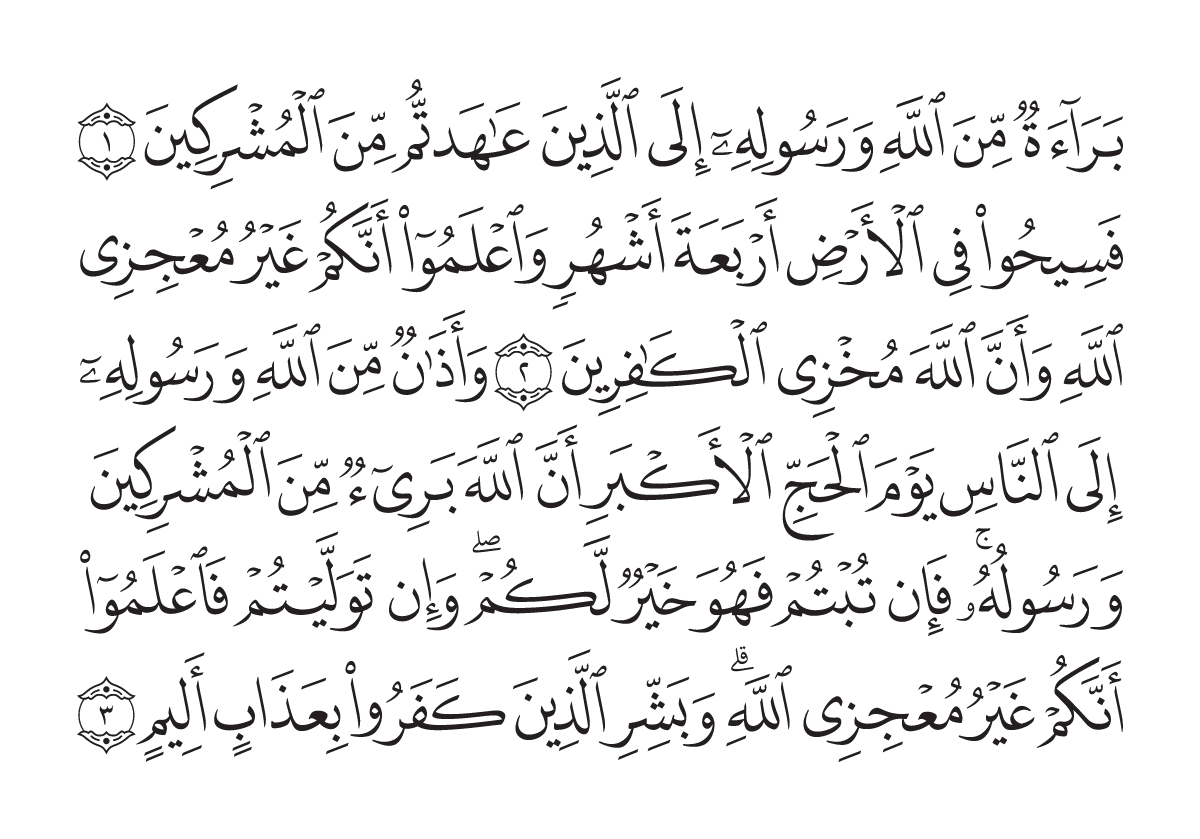 بَرَآءَةٌ مِّنَ ٱللَّهِ وَرَسُولِهِۦٓ إِلَى ٱلَّذِينَ عَٰهَدتُّم مِّنَ ٱلْمُشْرِكِينَ ١
فَسِيحُوا۟ فِى ٱلْأَرْضِ أَرْبَعَةَ أَشْهُرٍ وَٱعْلَمُوٓا۟ أَنَّكُمْ غَيْرُ مُعْجِزِى
ٱللَّهِ وَأَنَّ ٱللَّهَ مُخْزِى ٱلْكَٰفِرِينَ ٢ وَأَذَٰنٌ مِّنَ ٱللَّهِ وَرَسُولِهِۦٓ
إِلَى ٱلنَّاسِ يَوْمَ ٱلْحَجِّ ٱلْأَكْبَرِ أَنَّ ٱللَّهَ بَرِىٓءٌ مِّنَ ٱلْمُشْرِكِينَ
وَرَسُولُهُۥ ۚ فَإِن تُبْتُمْ فَهُوَ خَيْرٌ لَّكُمْ ۖ وَإِن تَوَلَّيْتُمْ فَٱعْلَمُوٓا۟
أَنَّكُمْ غَيْرُ مُعْجِزِى ٱللَّهِ ۗ وَبَشِّرِ ٱلَّذِينَ كَفَرُوا۟ بِعَذَابٍ أَلِيمٍ ٣